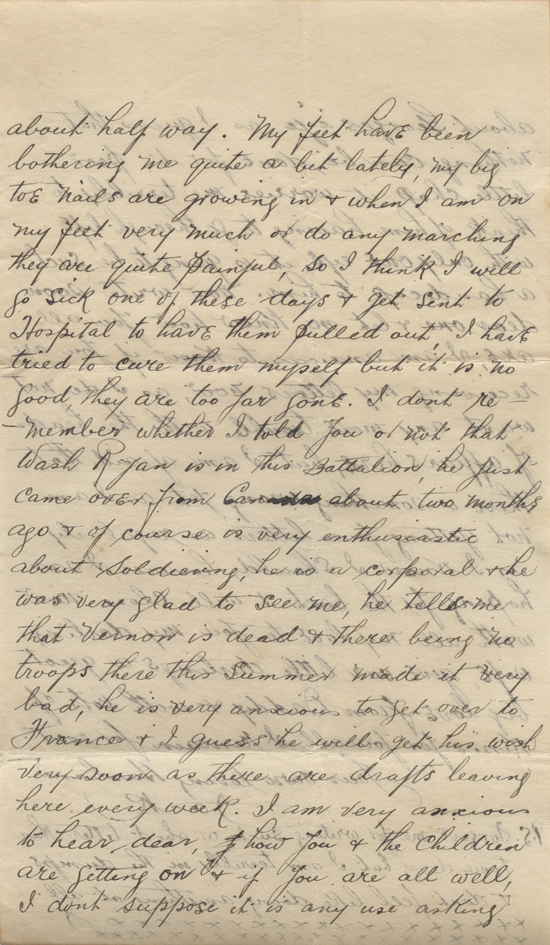 about half way. My feet have been
bothering me quite a bit lately, my big
toe nails are growing in & when I am on
my feet very much or do any marching
they are quite painful, so I think I will
go sick one of these days & get sent to
Hospital to have them pulled out, I have
tried to cure them myself but it is no
good they are too far gone. I dont re-
-member whether I told you or not that
Wash Ryan is in this Battalion, he just
came over from Canada about two months
ago & of course is very enthusiastic
about soldiering, he is a corporal & he
was very glad to see me, he tells me
that Vernon is dead & there being no
troops there this Summer made it very
bad, he is very anxious to get over to
France & I guess he will get his wish
very soon as there are drafts leaving
here every week. I am very anxious
to hear, dear, how you & the children
are getting on & if you are all well,
I dont suppose it is any use asking